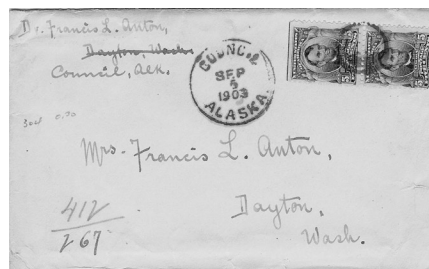 Dr. Francis L. Anton,
Dayton, Wash.
Council, Alk.
COUNCIL
SEP
1903
ALASKA
Mrs. Francis L. Anton,
Dayton,
Wash.
412
267